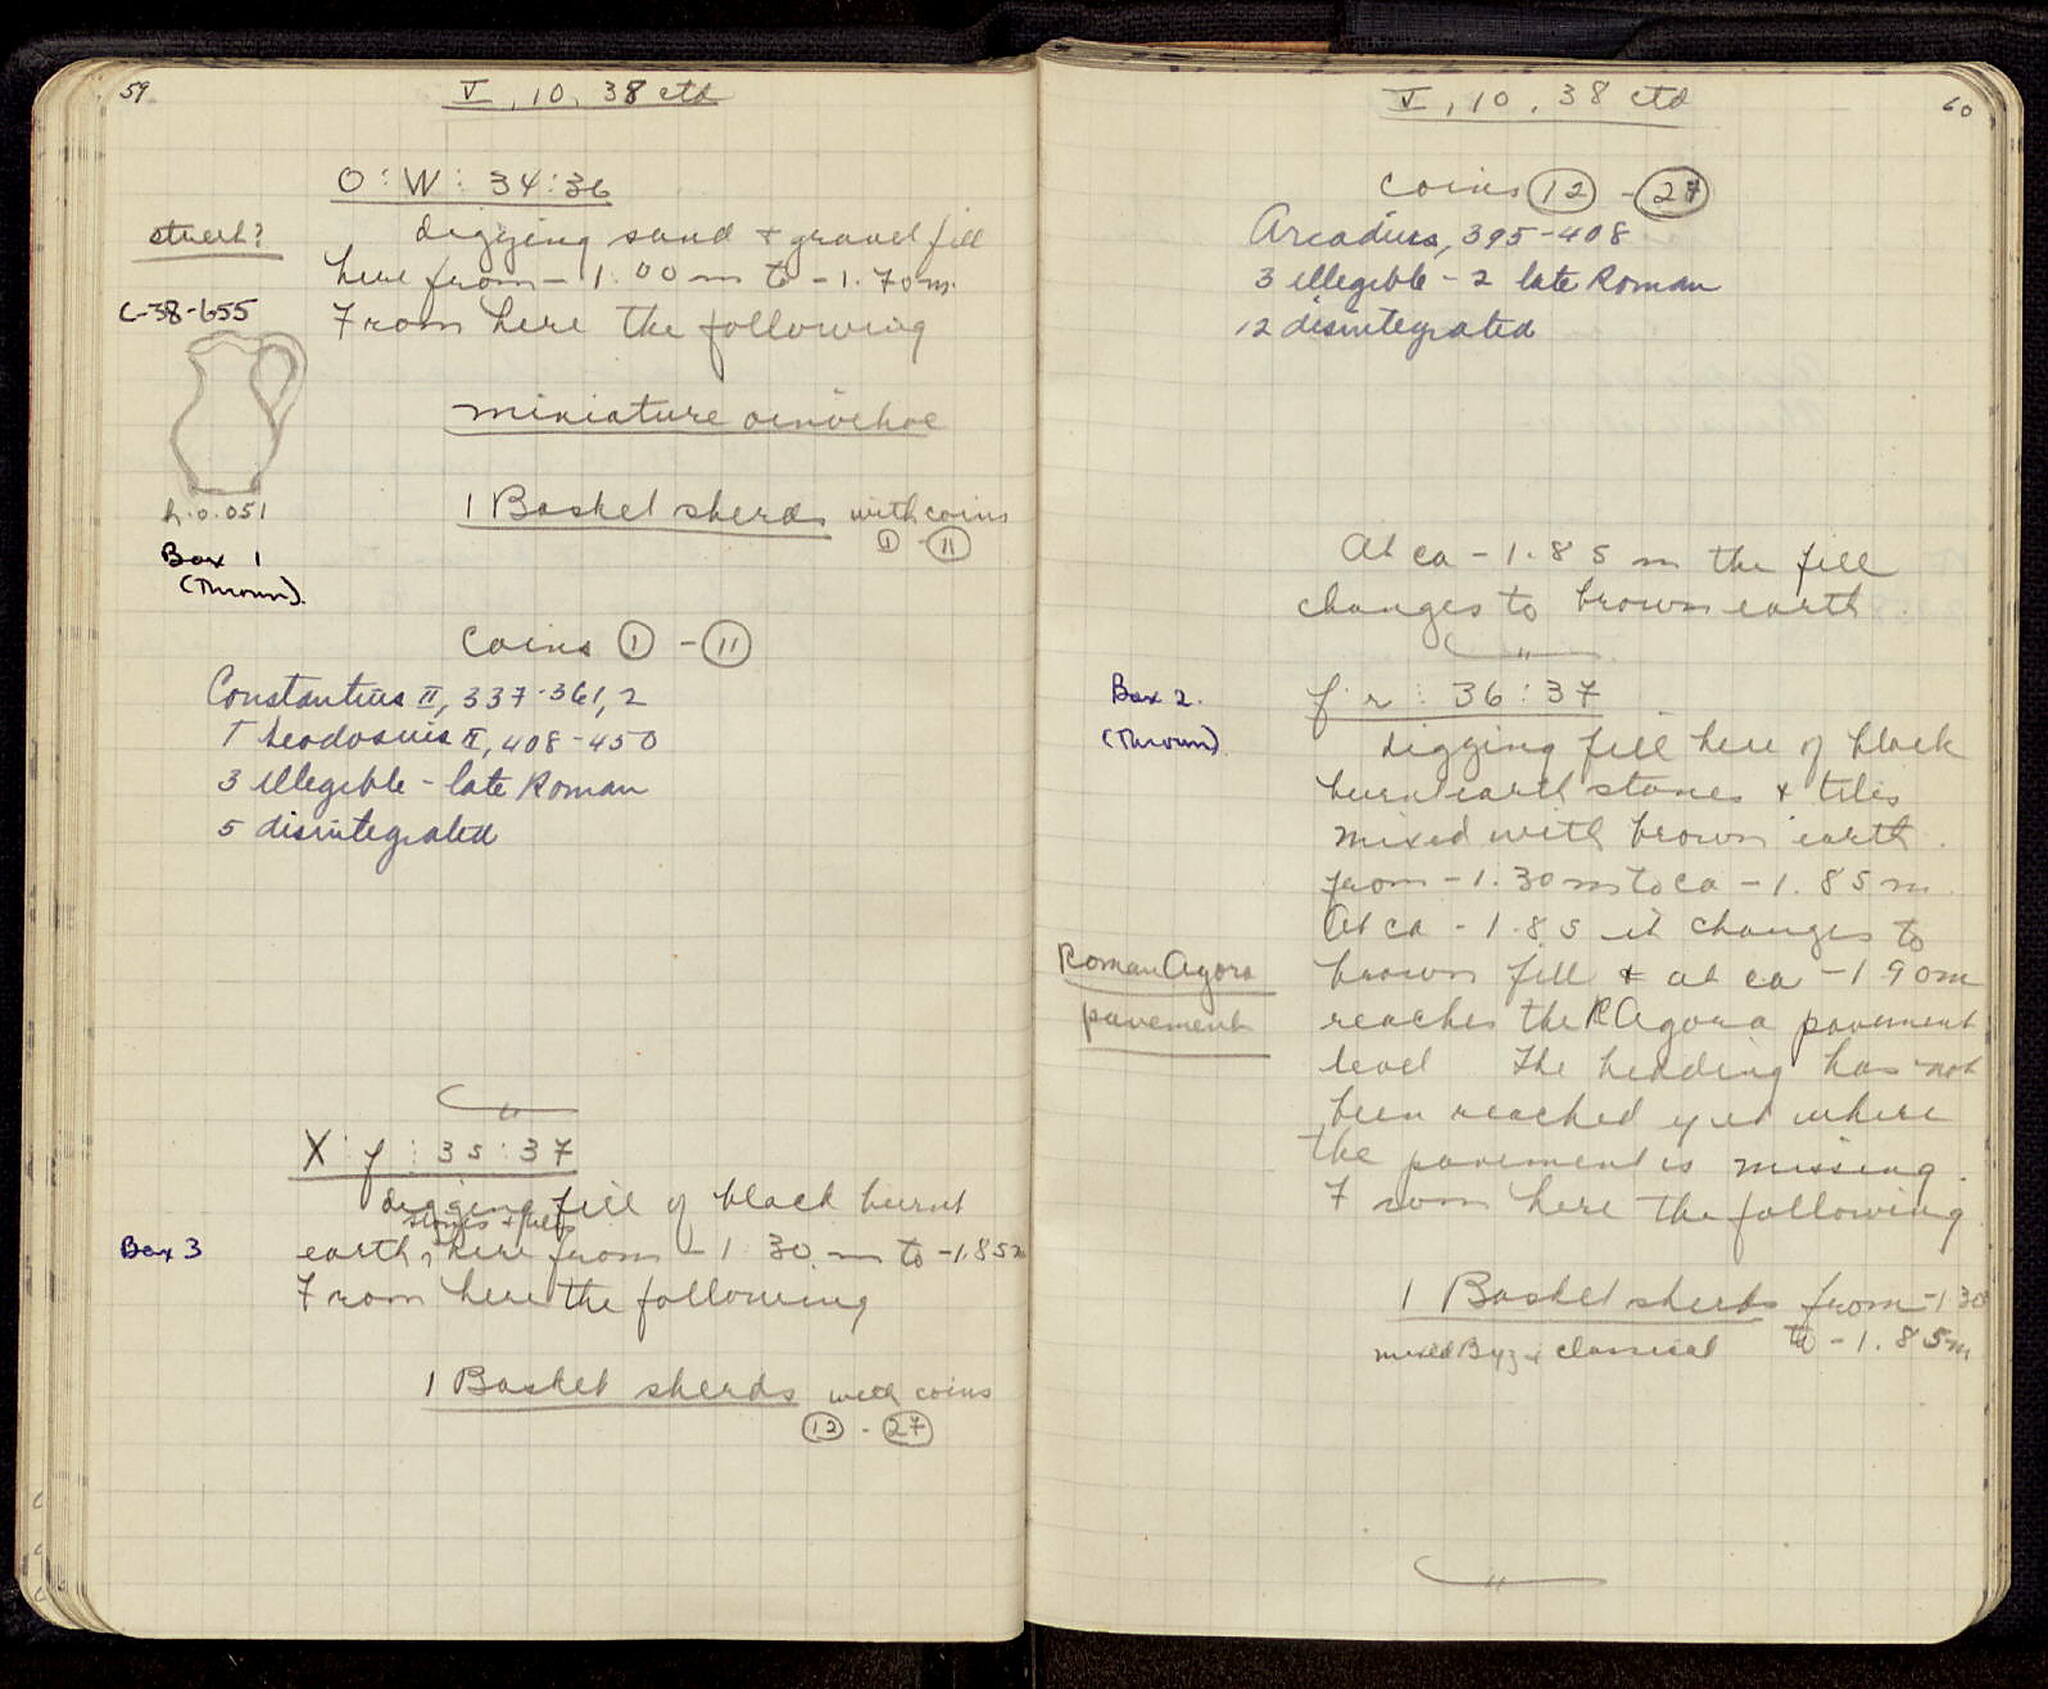 59
V, 10, 38 ctd
O : W : 34 : 36
street?
digging sand + gravel fill
here from - 1.00 m to - 1.70 m.
C-38-655
From here the following
miniature oinochoe
1 Basket sherds with coins
① - ⑪
h. 0.051
Box 1
(Thrown).
Coins ① - ⑪
Constantius II, 337-361, 2
Theodosius II, 408-450
3 illegible - late Roman
5 disintegrated
X : f : 35 : 37
digging fill of black burnt
stones + tiles
earth, here from - 1.30 m to -1.85 m
Box 3
From here the following
1 Basket sherds with coins
⑫ - ㉗
60
V, 10, 38 ctd
Coins ⑫ - ㉗
Arcadius, 395-408
3 illegible - 2 late Roman
12 disintegrated
At ca - 1.85 m the fill
changes to brown earth
Box 2.
(Thrown).
f : r : 36 : 37
digging fill here of black
burnt earth stones + tiles
mixed with brown earth.
from - 1.30 m to ca - 1.85 m.
At ca - 1.85 it changes to
Roman Agora
pavement
brown fill + at ca - 1 90m
reaches the R Agora pavement
level The bedding has not
been reached yet where
the pavement is missing.
From here the following
1 Basket sherds from -1 30
to - 1.85m
mixed Byz + classical